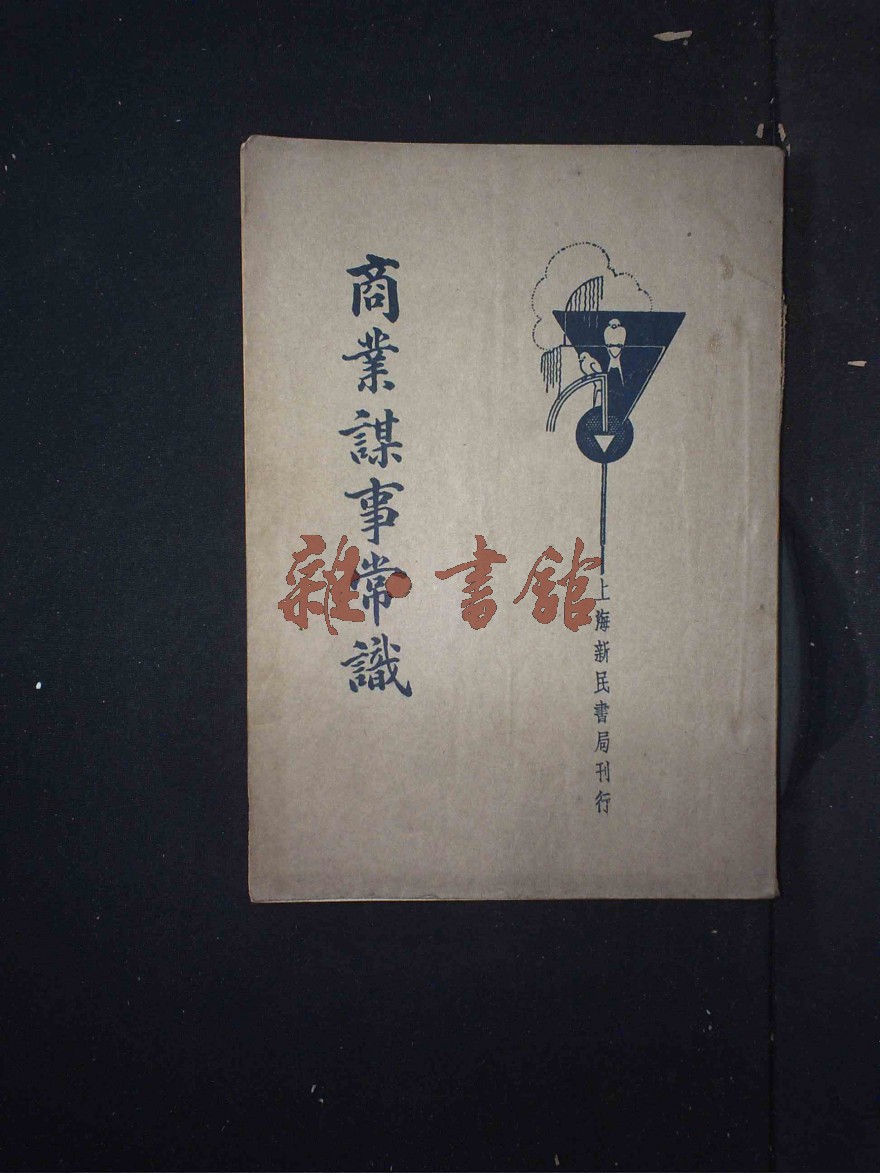 商業謀事常識
上海新民書局刊行
雜·書館